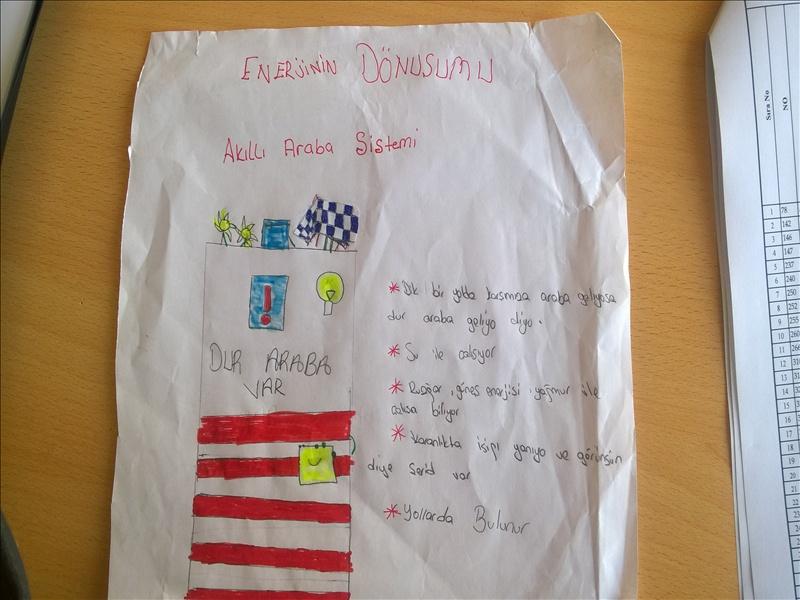 ENERJİNİN DÖNUSUMU
AKıLLı Araba Sistemi
!
DUR ARABA
VAR
* Dik bir yolda karsınıza araba geliyosa
dur araba geliyo diyo.
* Su ile calısıyor
* Ruzgar, günes enerjisi, yağmur ile
calısa biliyor
* Karanlıkta ışıgı yanıyo ve görünsün
diye serid var
* Yollarda Bulunur
Sıra No
NO
1 78
2 142
3 146
4 147
5 237
6 240
7 250
8 252
9 255
10 260
11
12
13
14
15
16
17
18
19
20
21